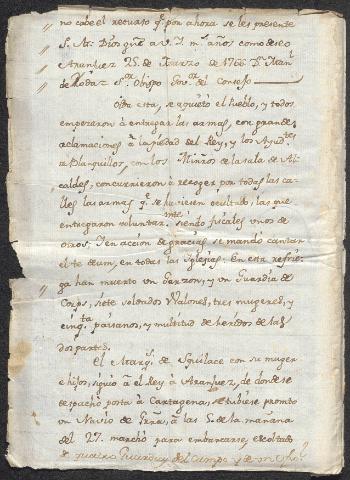 no cabe el recurso q.e por ahora se les presente
S. M. Dios gue. a V. I. m.s años como deseo
Aranjuez 25. de Marzo de 1766. D.n Man.l
de Roda = S.or Obispo Gov.or del Consejo
Oida esta, se aquietó el Pueblo, y todos
empezaron à entregar las armas, con grandes
aclamaciones à la piedad del Rey, y los Ayud.tes
de Blanquillos, con los Minros de la sala de Al-
caldes, concurrieron à recoger por todas las ca-
lles las armas q.e se huviesen ocultado, las que
entregaron voluntar.mte siendo fiscales unos de
otros, i en accion de gracias se mandò cantar
el te deum, en todas las Iglesias; En esta refrie-
ga han muerto un Garzon, y un Guardia de
Corps, siete soldados Walones, tres mugeres, y
cinq.ta paisanos, y multitud de heridos de las
dos partes.
El Marq.s de Squilace con su muger
e hijos, siguió à el Rey à Aranjuez, de donde se
despachò posta à Cartagena, se tubiese promto
un Navio de Grra, à las 5. de la mañana
del 27. marchò para embarcarse, escoltado
de quatro Guardias del Campo y de un